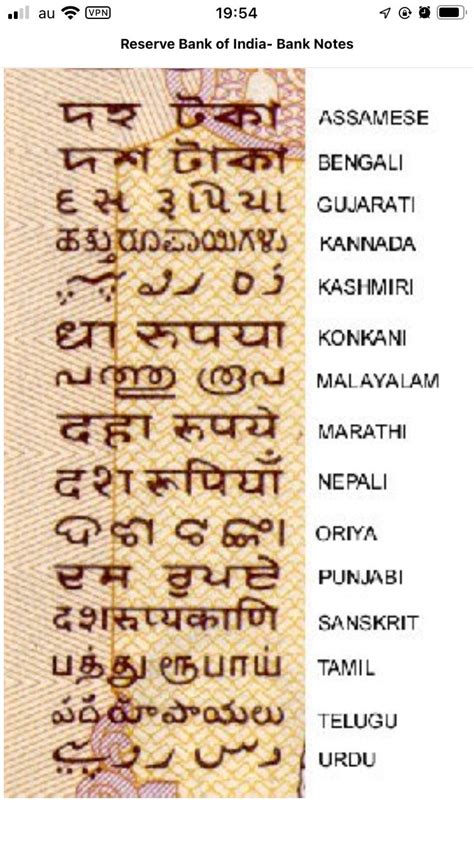 au VPN 19:54
Reserve Bank of India- Bank Notes
দহ টকা ASSAMESE
দশ টাকা BENGALI
દસ રૂપિયા GUJARATI
ಹತ್ತು ರೂಪಾಯಿಗಳು KANNADA
KASHMIRI
धा रुपया KONKANI
പത്തു രൂപ MALAYALAM
दहा रुपये MARATHI
दश रूपियाँ NEPALI
ଦଶ ଟଙ୍କା ORIYA
ਦਸ ਰੁਪਏ PUNJABI
दशरूप्यकाणि SANSKRIT
பத்து ரூபாய் TAMIL
పది రూపాయలు TELUGU
دس روپے URDU